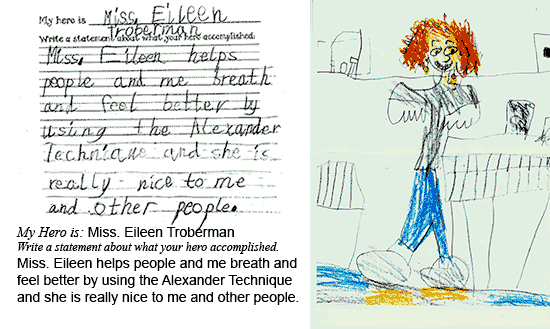 My hero is Miss, Eileen
Troberman
Write a statement about what your hero accomplished.
Miss, Eileen helps
people and me breath
and feel better by
using the Alexander
Technique and she is
really nice to me
and other people.
My Hero is: Miss. Eileen Troberman
Write a statement about what your hero accomplished.
Miss. Eileen helps people and me breath and
feel better by using the Alexander Technique
and she is really nice to me and other people.